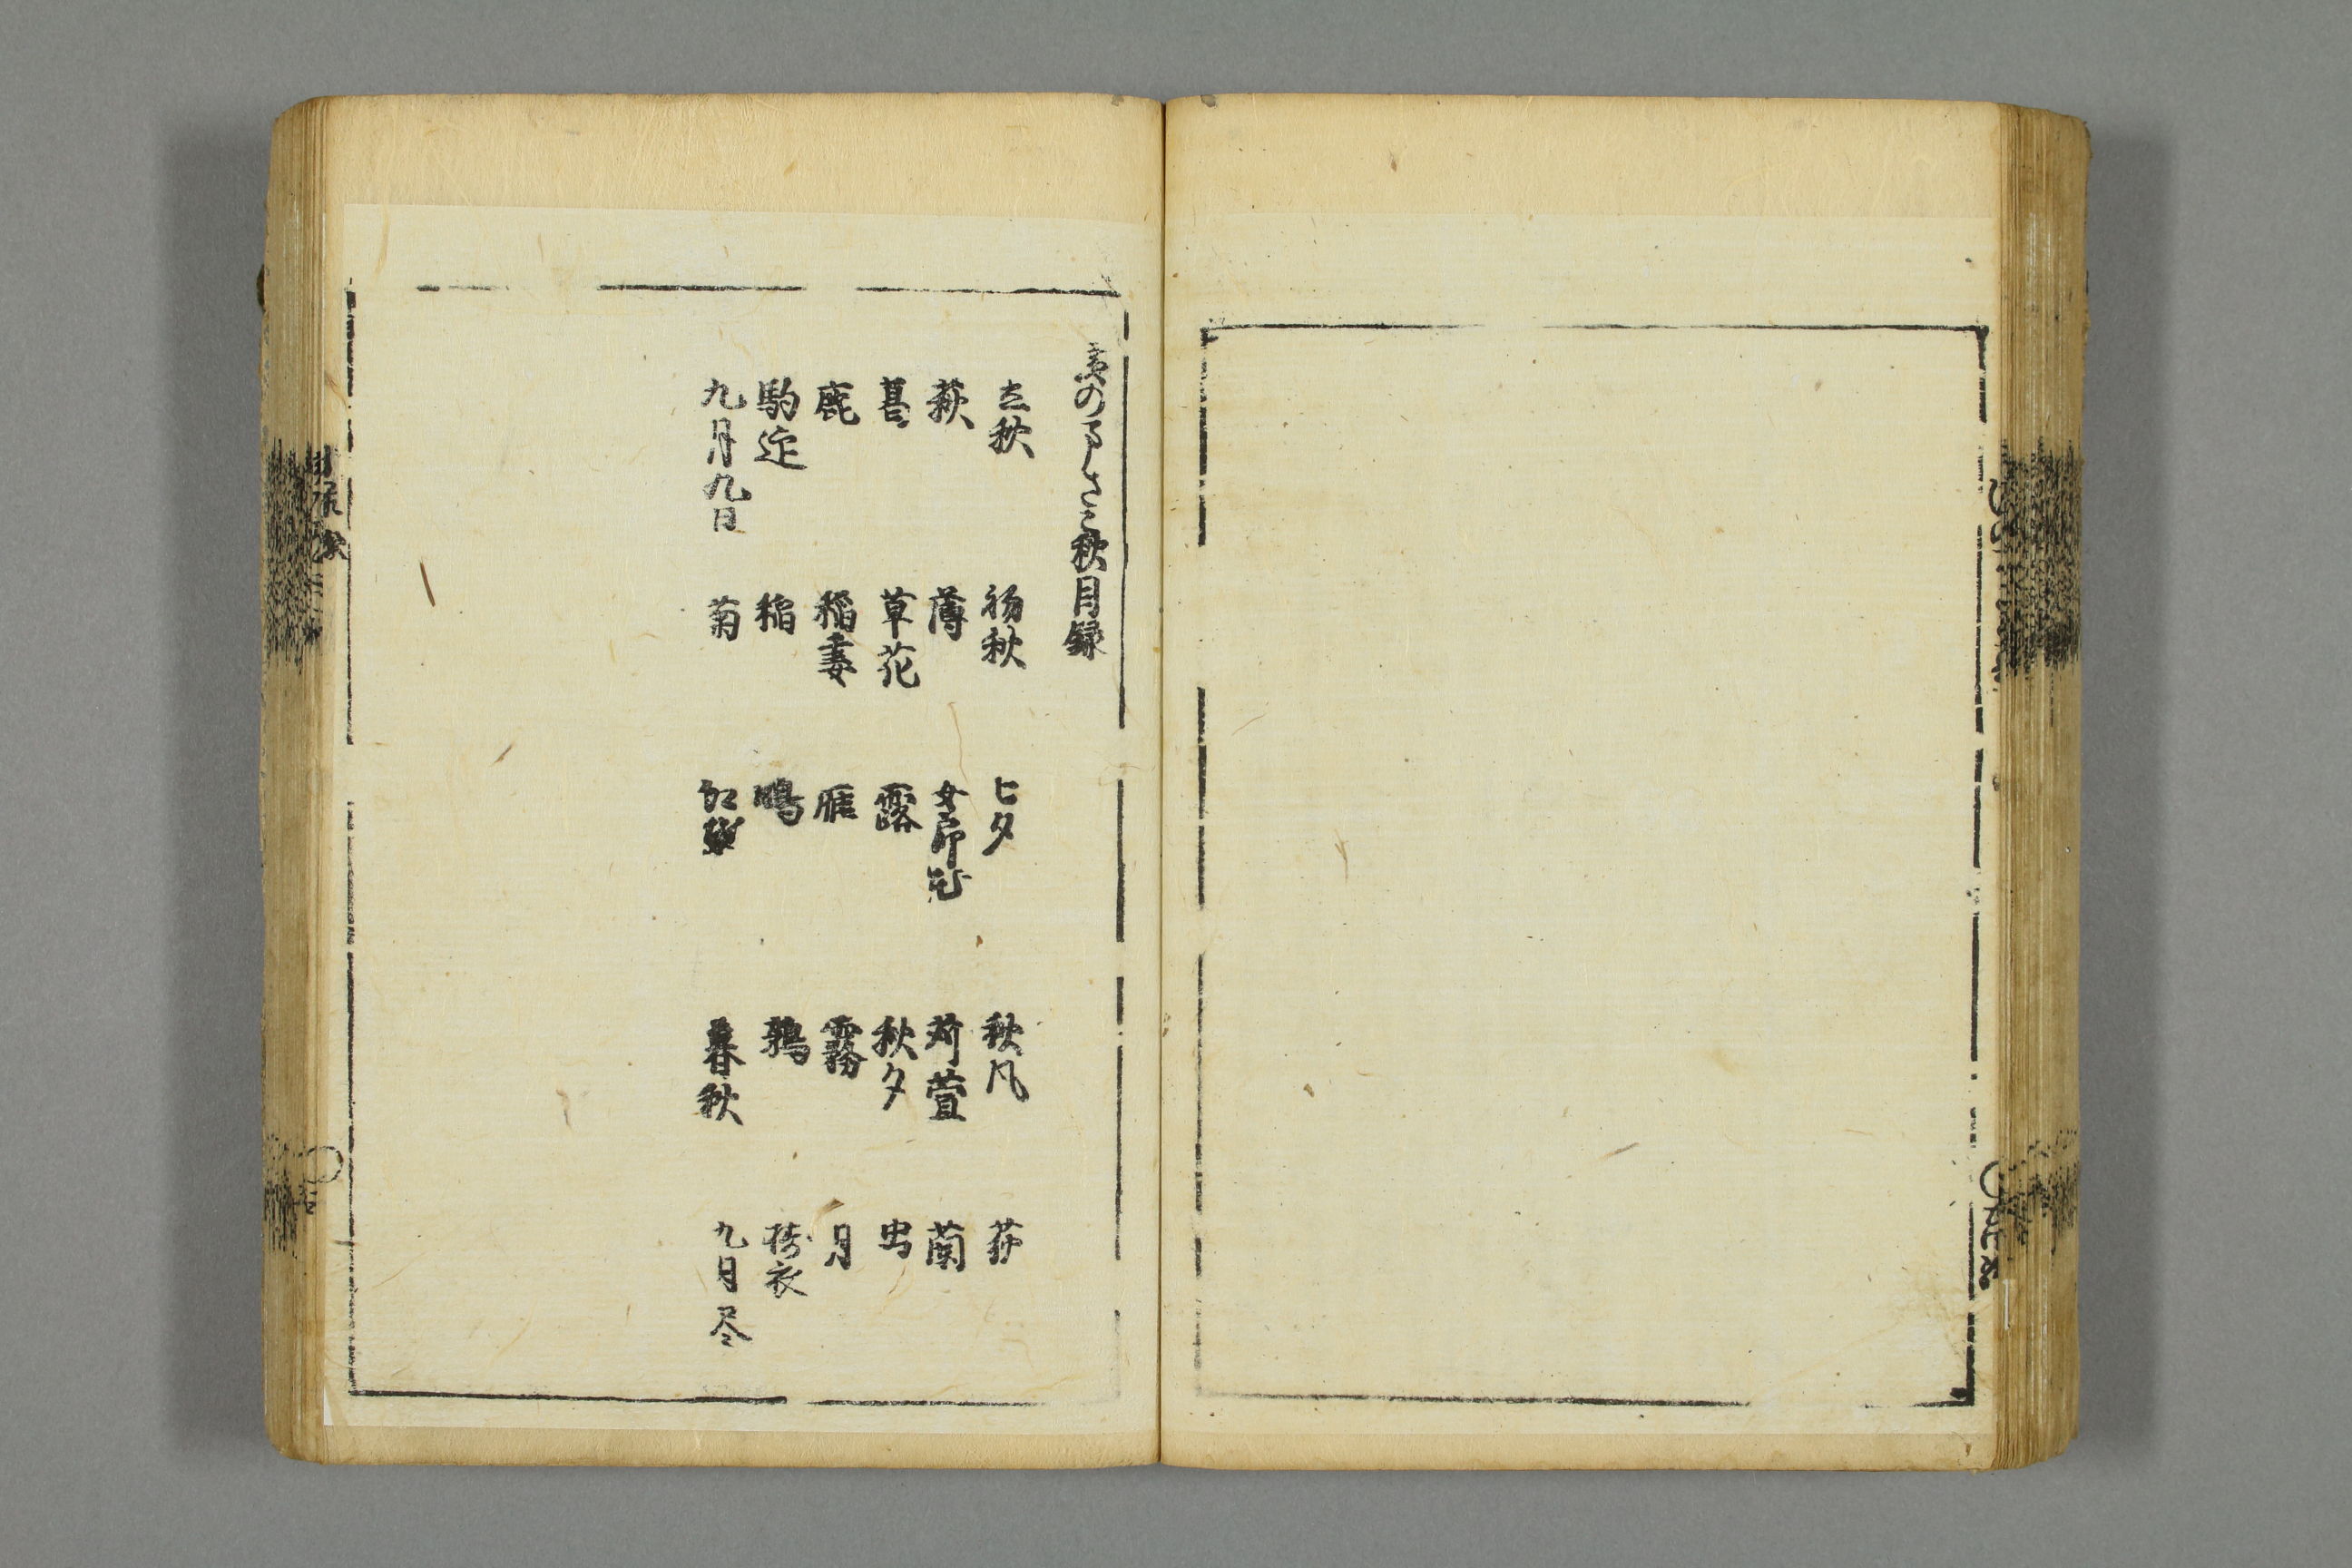 秋目録
立秋 初秋 七夕 秋風 荻
萩 薄 女郎花 苅萱 蘭
草花 露 秋夕 虫
鹿 稲妻 雁 霧 月
駒迎 稲 鴫 鶉 擣衣
九月九日 菊 紅葉 暮秋 九月尽